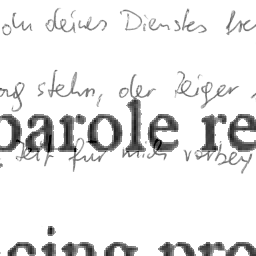 deines Dienstes
stehn, der Zeiger
parole re
Zeit für mich vorbey
cing pro